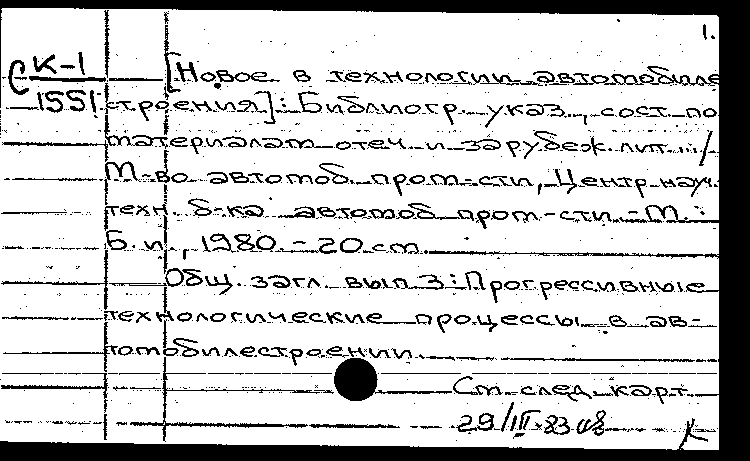 1.
С К-1 [Новое в технологии автомобиле
1551 строения]: Библиогр. указ., сост. по
материалам отеч. и зарубеж. лит. .../
М-во автомоб. пром-сти, Центр. науч.
техн. б-ка автомоб. пром-сти. - М.:
Б. и., 1980. - 20 см.
Общ. загл. вып. 3: Прогрессивные
технологические процессы в ав-
томобилестроении.
См. след. карт.
29/III-83